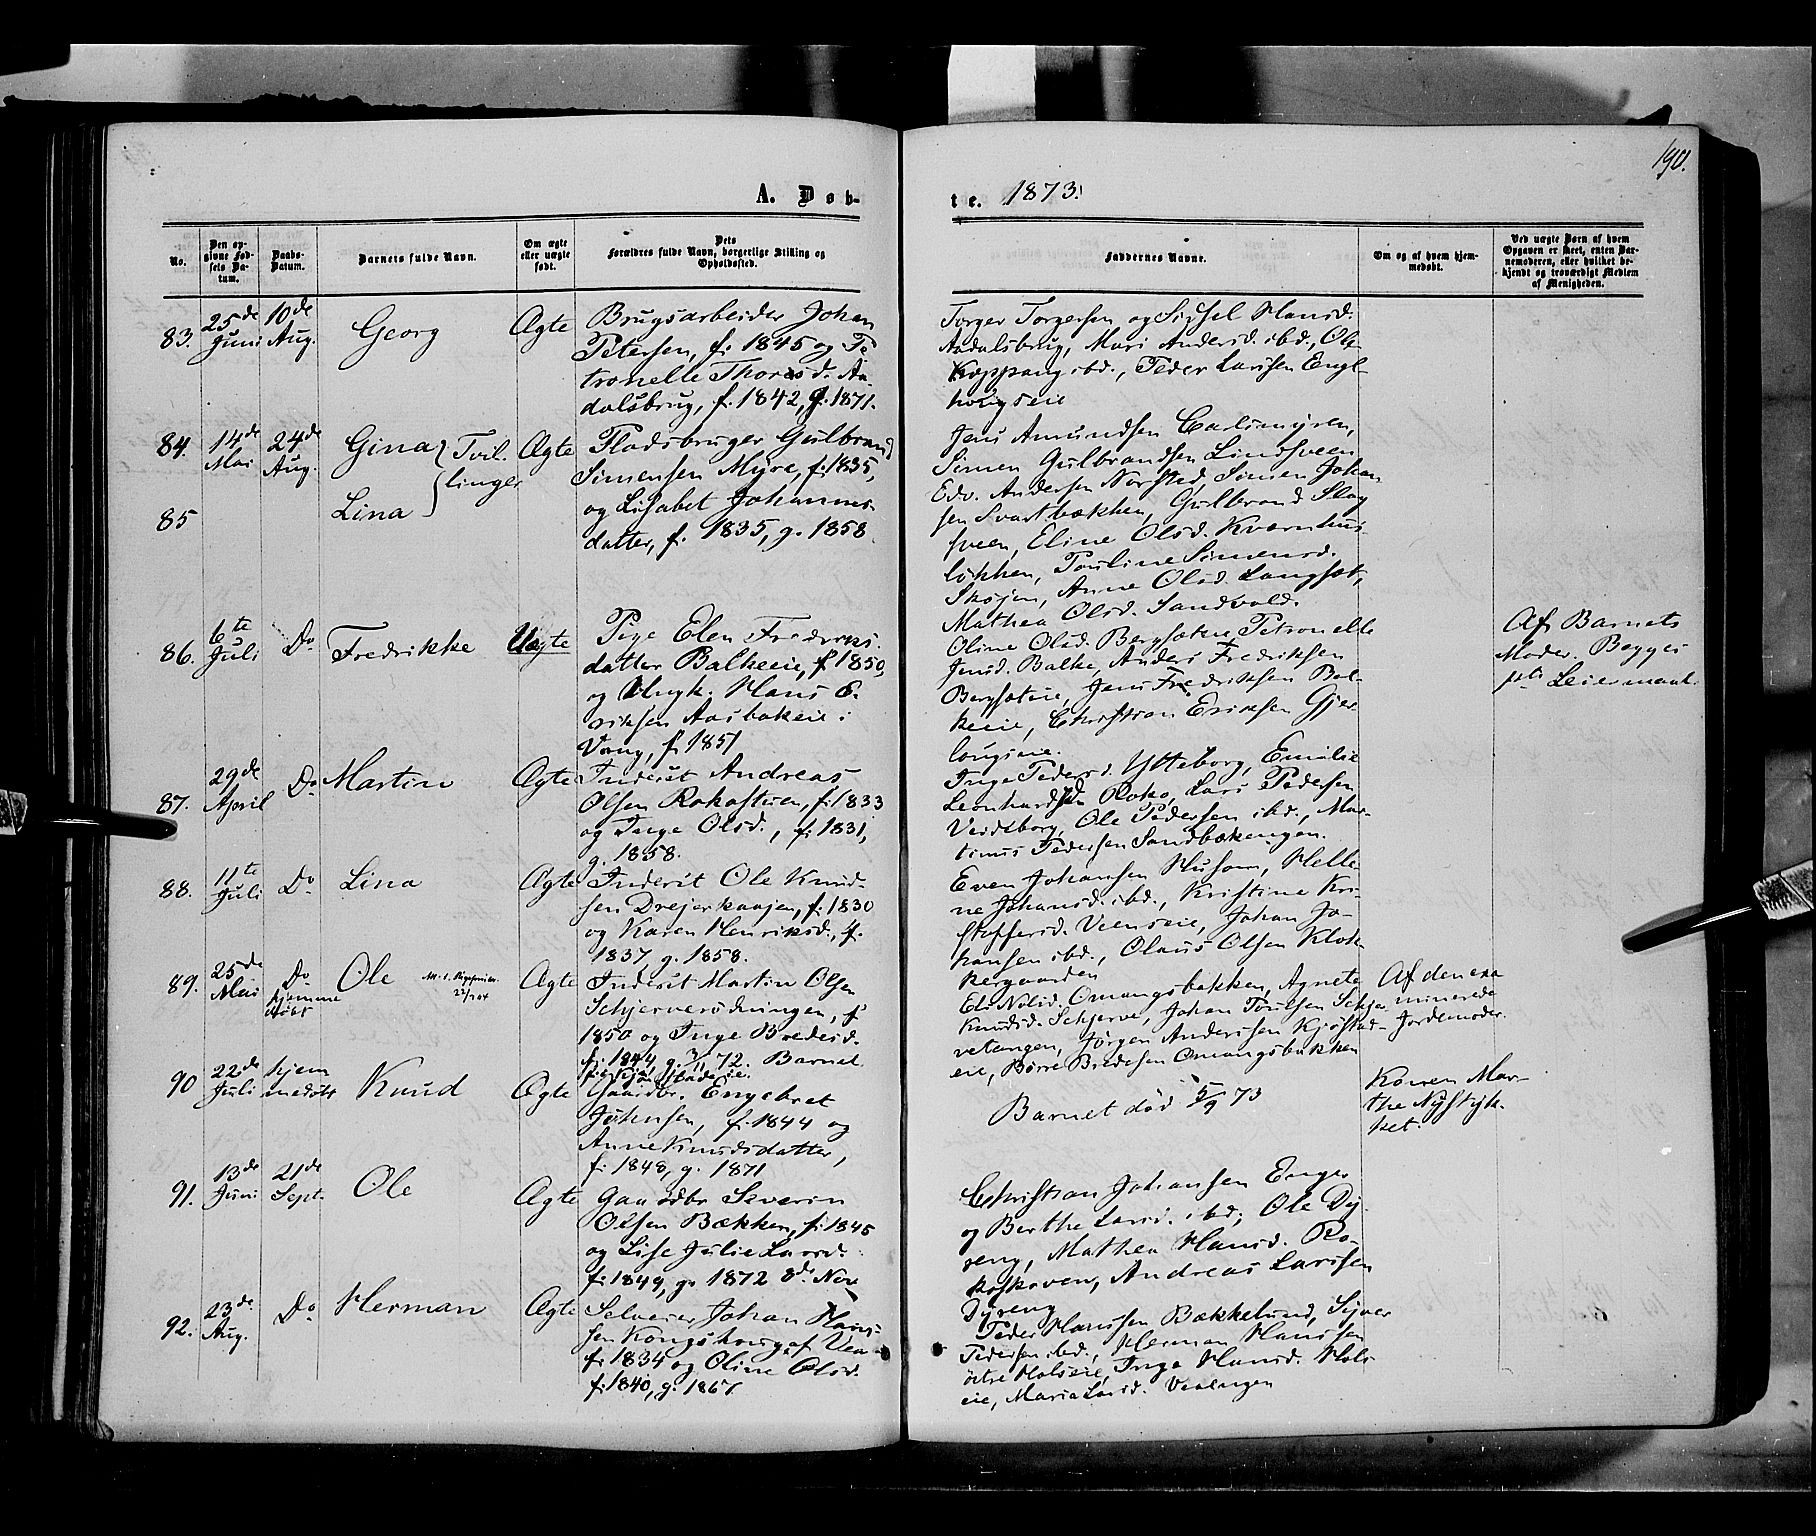 190.
A. Døb-
te. 1873.
No.
Den opgivne Fødsels Datum.
Daabs-Datum.
Barnets fulde Navn.
Om ægte eller uægte født.
Dets Forældres fulde Navn, borgerlige Stilling og Opholdssted.
Faddernes Navne.
Om og af hvem hjemmedøbt.
Ved uægte Børn af hvem Opgaven er skeet, enten Barnemoderen, eller hvilket bekjendt og troværdigt Medlem af Menigheden.
83.
25de Juni
10de Aug.
Georg
Ægte
Brugsarbeider Johan
Petersen, f. 1845 og Pe-
tronelle Thorsd. Aa-
dalsbrug, f. 1842, g. 1871.
Torger Torgersen og Sissel Hansd.
Aadalsbrug, Mari Andersd. ibd., Ole
Koppang ibd., Peder Larssen Engl-
haugseie
84.
14de Mai
24de Aug.
Gina } Tvil-
85
Lina } linger
Ægte
Pladsbruger Gulbrand
Simensen Myre, f. 1835,
og Lisabet Johannes-
datter, f. 1835, g. 1858.
Jens Amundsen Carlsmyren,
Simen Gulbrandsen Lindsveen
Edv. Andersen Norsted, Simen Johan-
sen Svartbækken, Gulbrand Slag
sveen, Eline Olsd. Kværnhus-
løkken, Pauline Simensd.
Skøjen, Anne Olsd. Langset,
Mathea Olsd. Sandvold.
86.
6te Juli
Do
Fredrikke
Uægte
Pige Elen Fredriks-
datter Balkeeie, f. 1850,
og Ungk. Hans E-
riksen Aasbakeie i
Vang, f. 1851
Oline Olsd. Bergseteie, Petronelle
Jensd. Balke, Anders Fredriksen
Bergseteie, Jens Fredriksen Bal-
keeie, Christian Eriksen Gjer-
longseie.
Af Barnets
Moder. Begges
1ste Leiermaal.
87.
29de April
Do
Martin
Ægte
Inderst Andreas
Olsen Rokosteien, f. 1833
og Inge Olsd., f. 1831,
g. 1858.
Inge Pedersd. Ytteborg, Emilie
Leonhardsd. Roko, Lars Pedersen
Veidsborg, Ole Pedersen ibd., Mar-
tinus Pedersen Sandbakengen.
88.
11te Juli
Do
Lina
Ægte
Inderst Ole Knud-
sen Drejerkaajen, f. 1830
og Karen Henriksd., f.
1837, g. 1858.
Even Johansen Husom, Helle-
ne Johansd. ibd., Kristine Kri-
stoffersd. Veenseie, Johan Jo-
hansen ibd., Olaus Olsen Klok-
kergaarden
89.
25de Mai
Do hjemme døbt
Ole
Ægte
Inderst Martin Olsen
Schjerverødningen, f
1850 og Inge Bredesd.
f. 1844, g. 3/11 72. Barnet
Eli Nilsd. Omangsbakken, Agnete
Knudsd. Schjerve, Johan Poulsen Schjer
vetangen, Jørgen Anderssen Kjøstad-
eie, Børre Bredesen Omangsbakken
Af den exa
minerede
Jordemoder.
90
22de Juli
hjem medøbt
Knud
Ægte
Gaardbr. Engebret
Johnsen, f. 1844 og
Anne Knudsdatter,
f. 1848, g. 1871
Barnet død 5/9 73
Karen Mar-
the Nystyk-
ket.
91.
13de Juni
21de Sept.
Ole
Ægte
Gaardbr Severin
Olsen Bækken, f. 1845
og Lise Julie Larsd.
f. 1849, g. 1872 8de Nov
Christian Johansen Enger
og Berthe Larsd. ibd; Ole Dy-
reng, Mathea Hansd. Ro-
koskoven, Andreas Larssen
Dyreng
92.
23de Aug.
Do
Herman
Ægte
Selveier Johan Hans-
sen Kongshaug af Vea-
f. 1834 og Oline Olsd.
f. 1840, g. 1867
Peder Hanssen Bækkelund, Sijver
Pedersen ibd., Herman Hanssen
østre Holseie, Inge Hansd. Hols-
eie, Maria Larsd. Vealangen